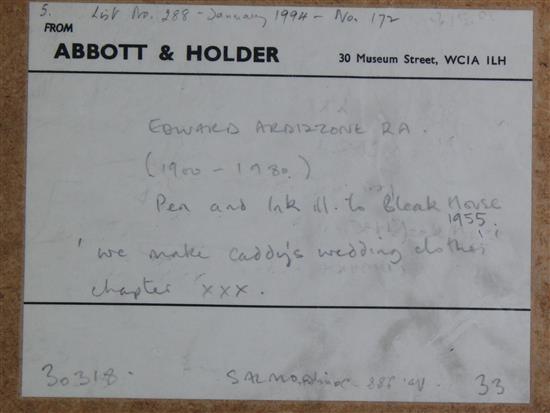 5. List No. 288 - January 1994 - No. 172
FROM
ABBOTT & HOLDER 30 Museum Street, WC1A 1LH
EDWARD ARDIZZONE RA.
(1900 - 1980)
Pen and Ink ill. to 'Bleak House'
1955.
'we make Caddy's wedding clothes'
chapter XXX.
30318. 33